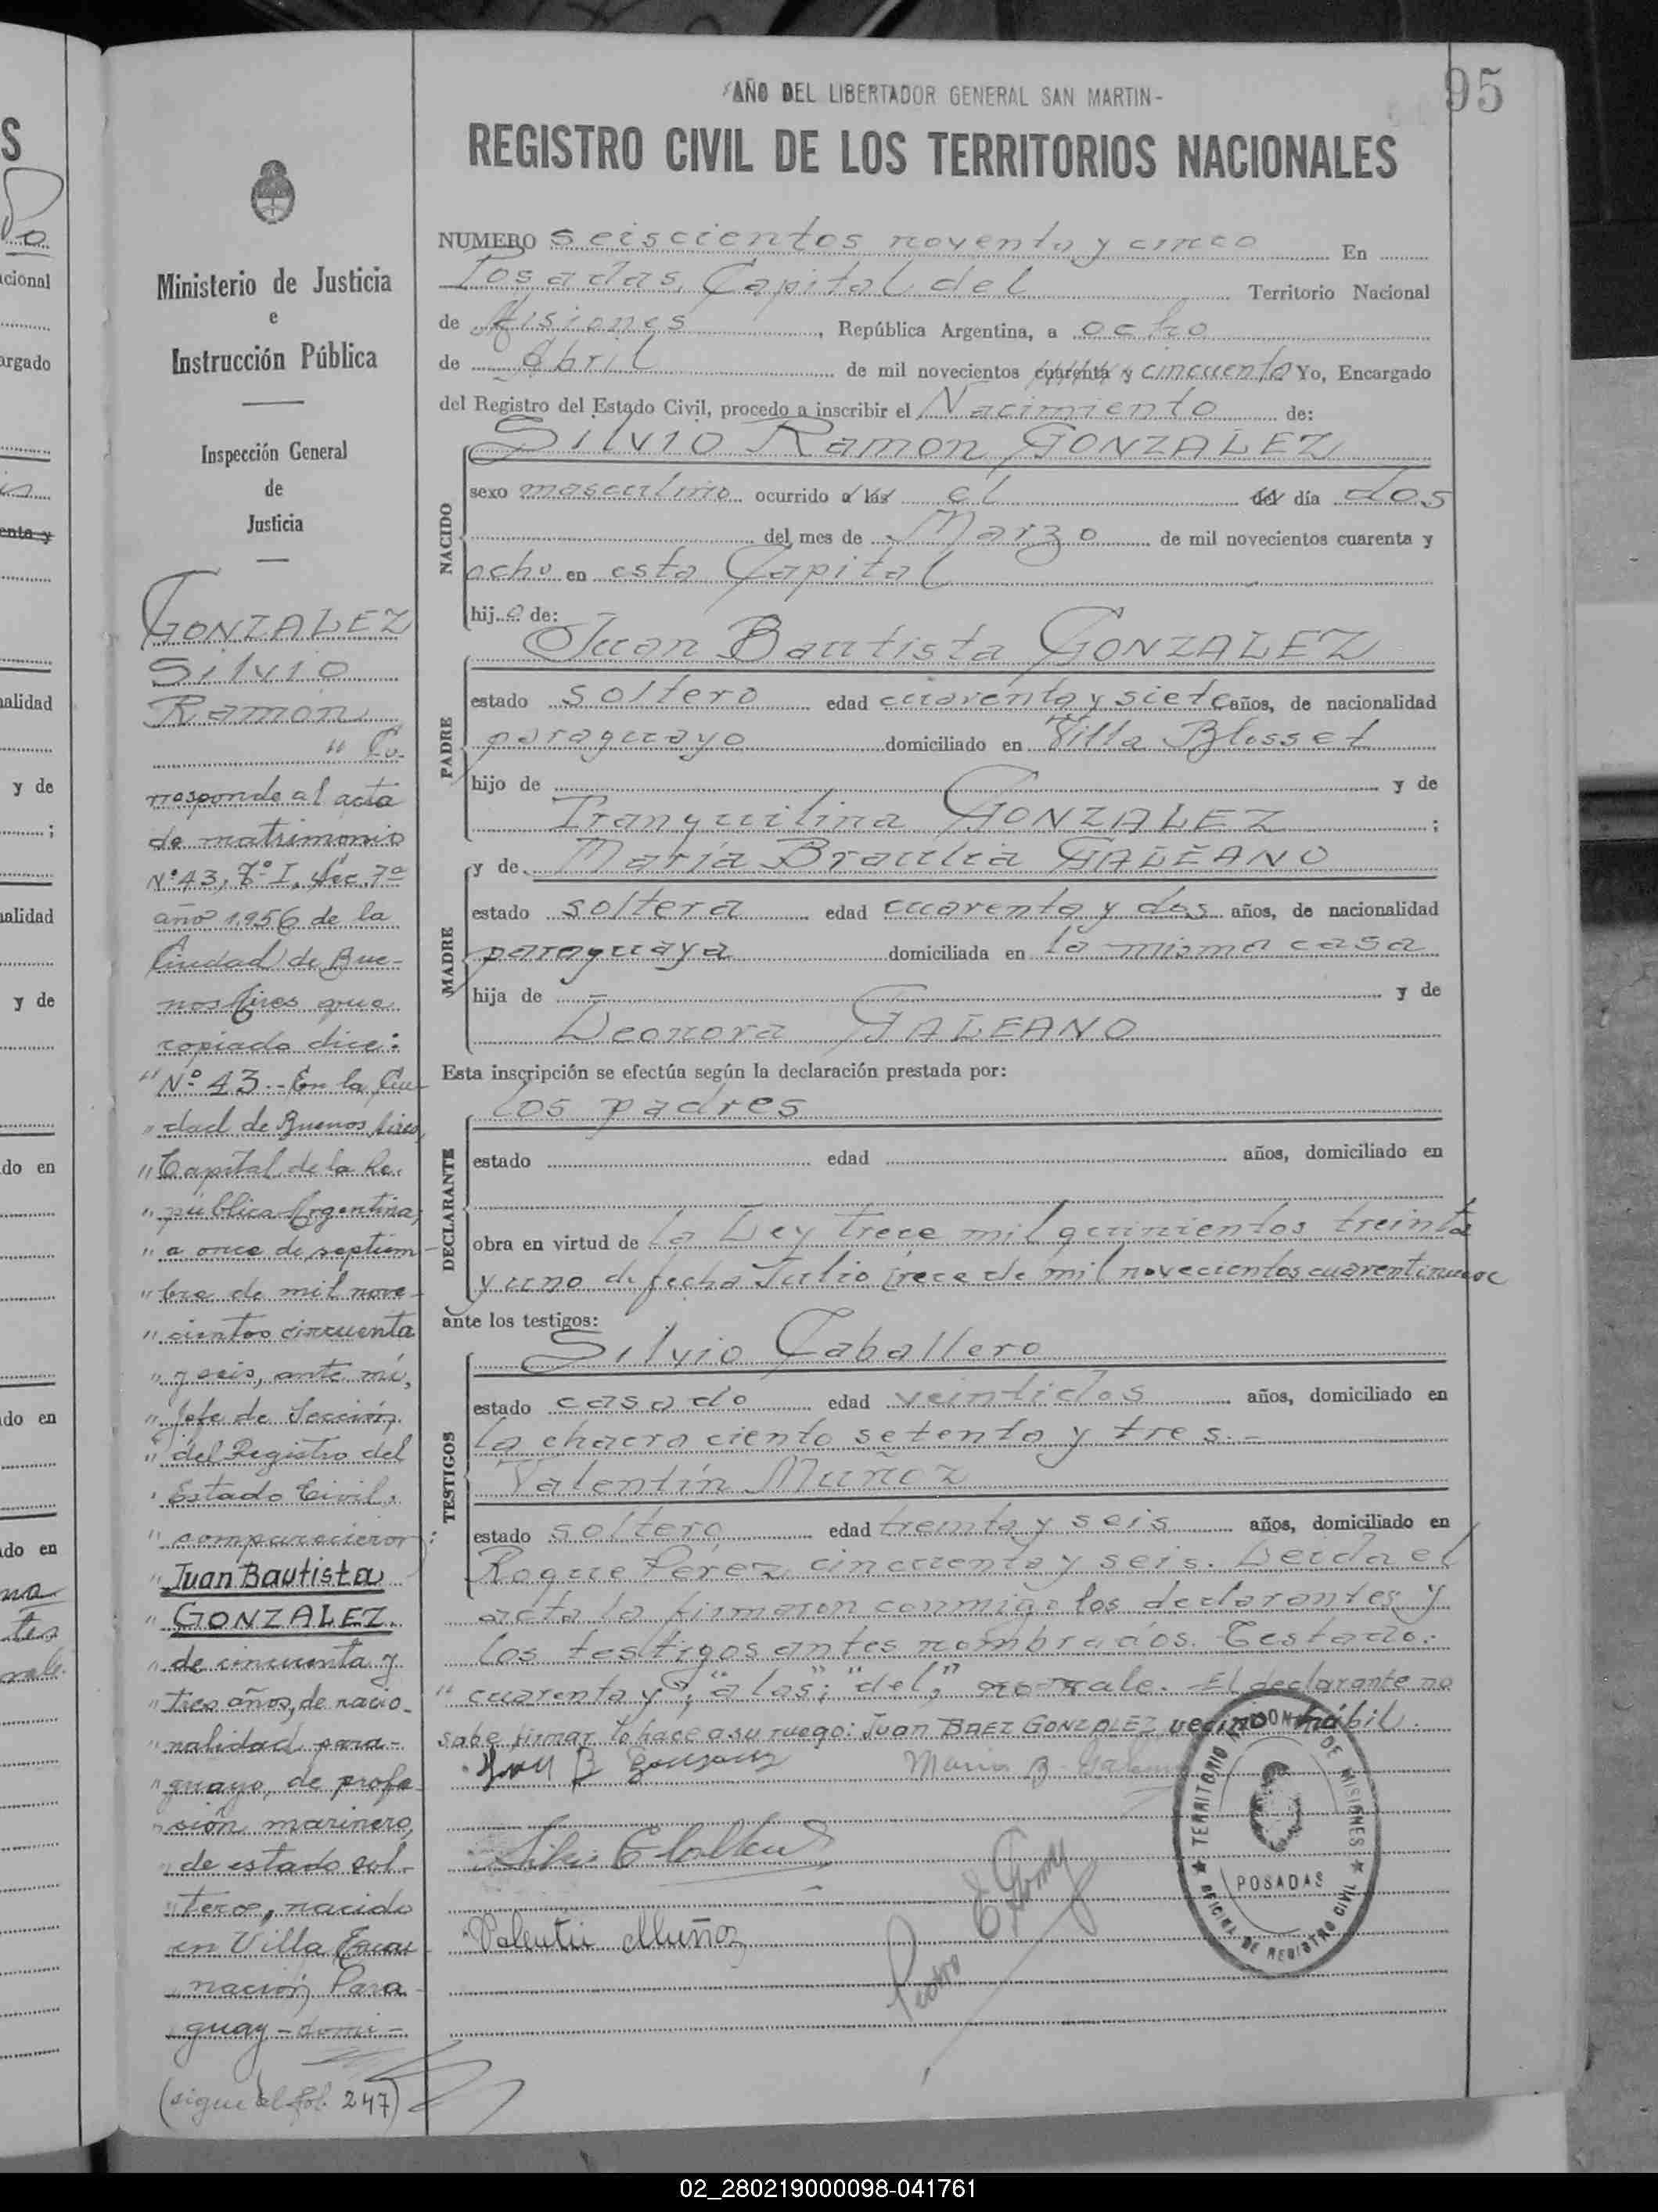 95
AÑO DEL LIBERTADOR GENERAL SAN MARTIN-
REGISTRO CIVIL DE LOS TERRITORIOS NACIONALES
Ministerio de Justicia
e
Instrucción Pública
Inspección General
de
Justicia
GONZALEZ
Silvio
Ramon
" Co-
rresponde al acta
de matrimonio
Nº 43, Tº I, Sec. 7ª
año 1956 de la
Ciudad de Bue-
nos Aires que
copiada dice:
"Nº 43.- En la Ciu-
" dad de Buenos Aires,
" Capital de la Re-
" pública Argentina,
" a once de septiem-
" bre de mil nove-
" cientos cincuenta
" y seis, ante mí,
" Jefe de Sección
" del Registro del
" Estado Civil,
" comparecieron:
" Juan Bautista
" GONZALEZ.
" de cincuenta y
" tres años, de nacio-
" nalidad para-
" guayo, de profe-
" sión marinero,
" de estado sol-
" tero, nacido
en Villa Encar-
" nación, Para-
guay - domi-
(sigue al fol. 247)
NUMERO seiscientos noventa y cinco En
Posadas, Capital del Territorio Nacional
de Misiones, República Argentina, a ocho
de Abril de mil novecientos cuarenta y cincuenta Yo, Encargado
del Registro del Estado Civil, procedo a inscribir el Nacimiento de:
NACIDO
Silvio Ramon GONZALEZ
sexo masculino ocurrido a las el del día dos
del mes de Marzo de mil novecientos cuarenta y
ocho en esta Capital
hijo de:
PADRE
Juan Bautista GONZALEZ
estado soltero edad cuarenta y siete años, de nacionalidad
paraguayo domiciliado en Villa Blosset
hijo de y de
Tranquilina GONZALEZ;
MADRE
y de María Braulia GALEANO
estado soltera edad cuarenta y dos años, de nacionalidad
paraguaya domiciliada en la misma casa
hija de - y de
Leonora GALEANO
Esta inscripción se efectúa según la declaración prestada por:
DECLARANTE
los padres
estado edad años, domiciliado en
obra en virtud de la Ley trece mil quinientos treinta
y uno de fecha Julio trece de mil novecientos cuarentinueve
ante los testigos:
TESTIGOS
Silvio Caballero
estado casado edad veintidos años, domiciliado en
la chacra ciento setenta y tres.-
Valentín Muñoz
estado soltero edad treinta y seis años, domiciliado en
Roque Perez cincuenta y seis. Leida el
acta la firmaron conmigo los declarantes y
los testigos antes nombrados. Testado:
"cuarenta y"; "a las"; "del"; no vale. El declarante no
sabe firmar lo hace a su ruego: Juan BAEZ GONZALEZ vecino hábil.
Juan B Gonzalez Maria B. Galeano
Valentin Muñoz
Pedro E Gomez
TERRITORIO NACIONAL DE MISIONES
POSADAS
OFICINA DE REGISTRO CIVIL
S
cional
argado
enta y
nalidad
y de
nalidad
y de
do en
do en
do en
02_280219000098-041761